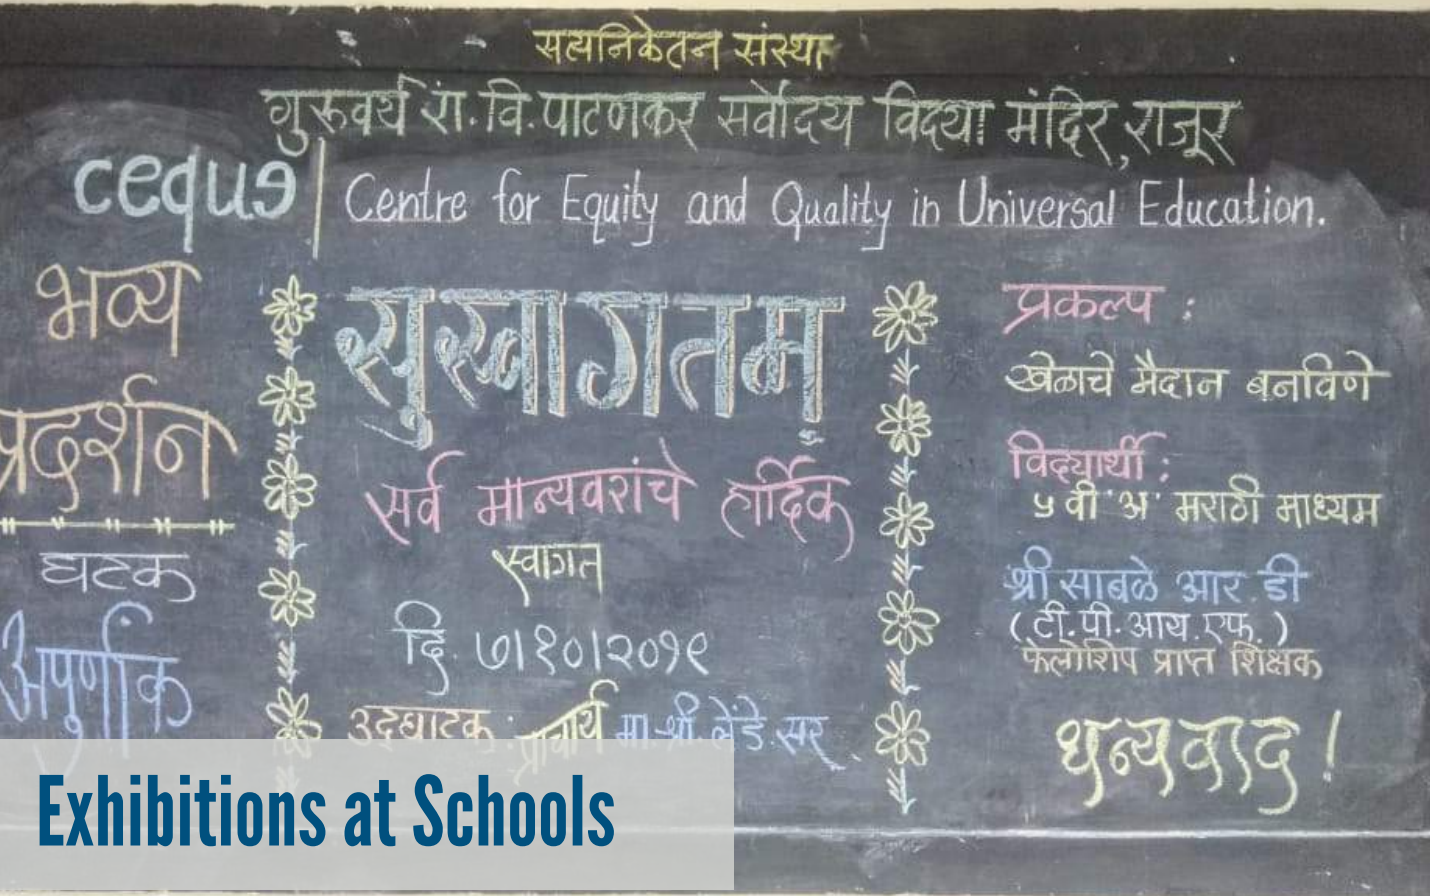 सत्यनिकेतन संस्था
गुरुवर्य रा. वि. पाटणकर सर्वोदय विद्या मंदिर, राजूर
ceque | Centre for Equity and Quality in Universal Education.
भव्य
प्रदर्शन
घटक
अपुर्णांक
सुस्वागतम्
सर्व मान्यवरांचे हार्दिक
स्वागत
दि. ७।१०।२०१९
उद्घाटक : प्राचार्य मा. श्री. लेंडे. सर
प्रकल्प :
खेळाचे मैदान बनविणे
विद्यार्थी :
५ वी 'अ' मराठी माध्यम
श्री साबळे आर. डी
(टी. पी. आय. एफ.)
फेलोशिप प्राप्त शिक्षक
धन्यवाद !
Exhibitions at Schools